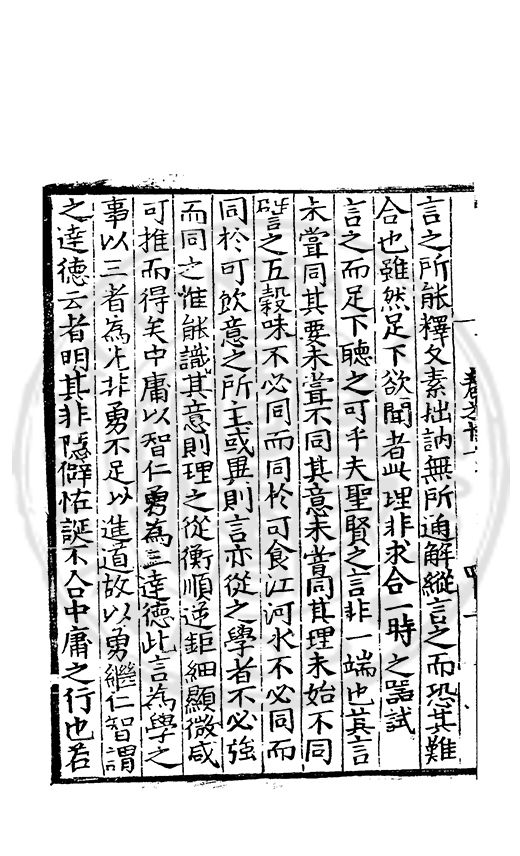 言之所能釋夂素拙訥無所通解縱言之而恐其難
合也雖然足下欲聞者此理非求合一時之器試
言之而足下聽之可乎夫聖賢之言非一端也其言
未嘗同其要未嘗不同其意未嘗同其理未始不同
譬之五穀味不必同而同於可食江河水不必同而
同於可飲意之所主或異則言亦從之學者不必強
而同之惟能識其意則理之從衡順逆鉅細顯微咸
可推而得矣中庸以智仁勇為三達德此言為學之
事以三者為先非勇不足以進道故以勇繼仁智謂
之達德云者明其非隱僻怪誕不合中庸之行也若